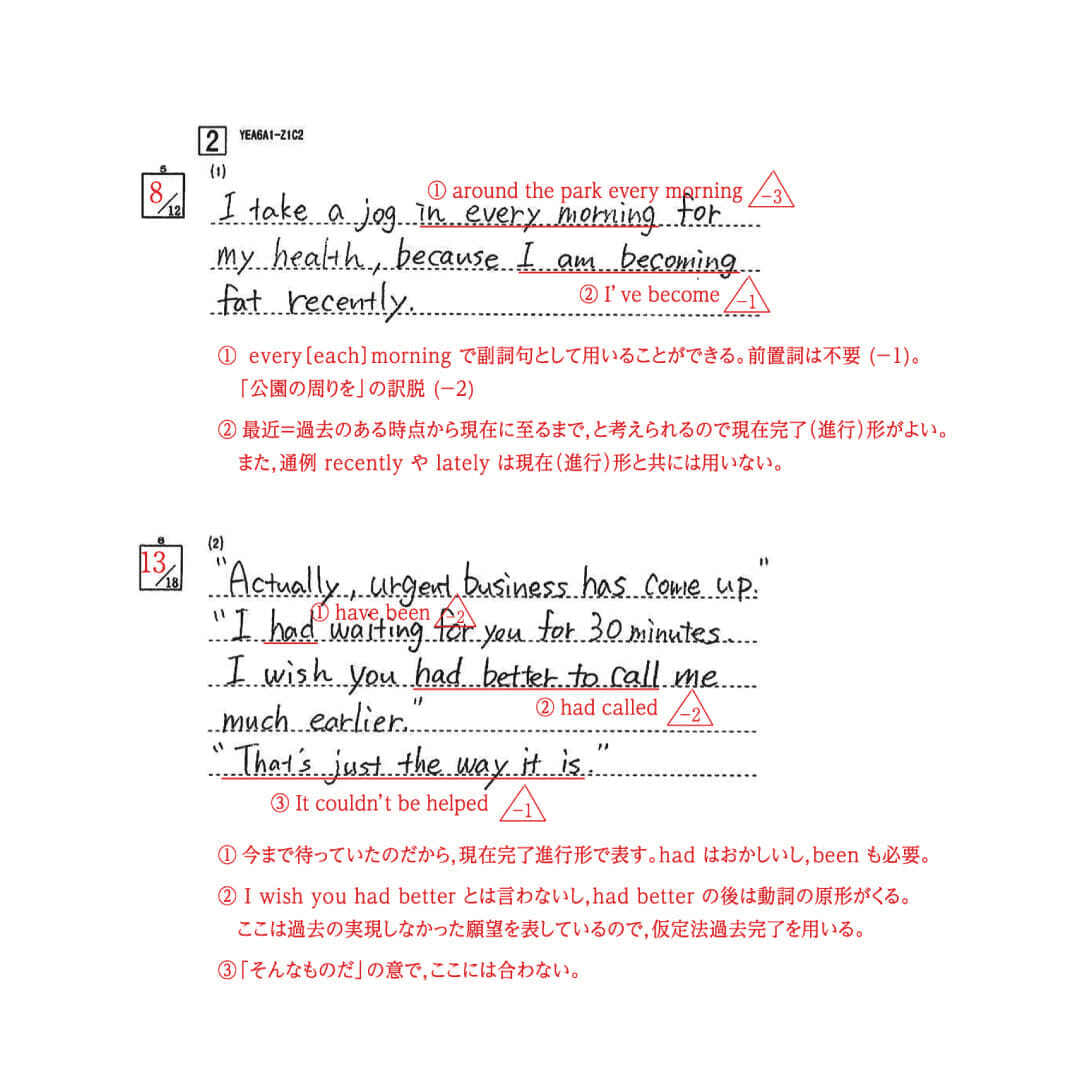 2 YEA6A1-Z1C2
5
8/12
(1)
① around the park every morning −3
I take a jog in every morning for
my health, because I am becoming
② I've become −1
fat recently.
① every[each]morning で副詞句として用いることができる。前置詞は不要 (−1)。
「公園の周りを」の訳脱 (−2)
② 最近＝過去のある時点から現在に至るまで，と考えられるので現在完了（進行）形がよい。
また，通例 recently や lately は現在（進行）形と共には用いない。
6
13/18
(2)
"Actually, urgent business has come up."
① have been −2
"I had waiting for you for 30 minutes.
I wish you had better to call me
② had called −2
much earlier."
"That's just the way it is."
③ It couldn't be helped −1
① 今まで待っていたのだから，現在完了進行形で表す。had はおかしいし，been も必要。
② I wish you had better とは言わないし，had better の後は動詞の原形がくる。
ここは過去の実現しなかった願望を表しているので，仮定法過去完了を用いる。
③「そんなものだ」の意で，ここには合わない。